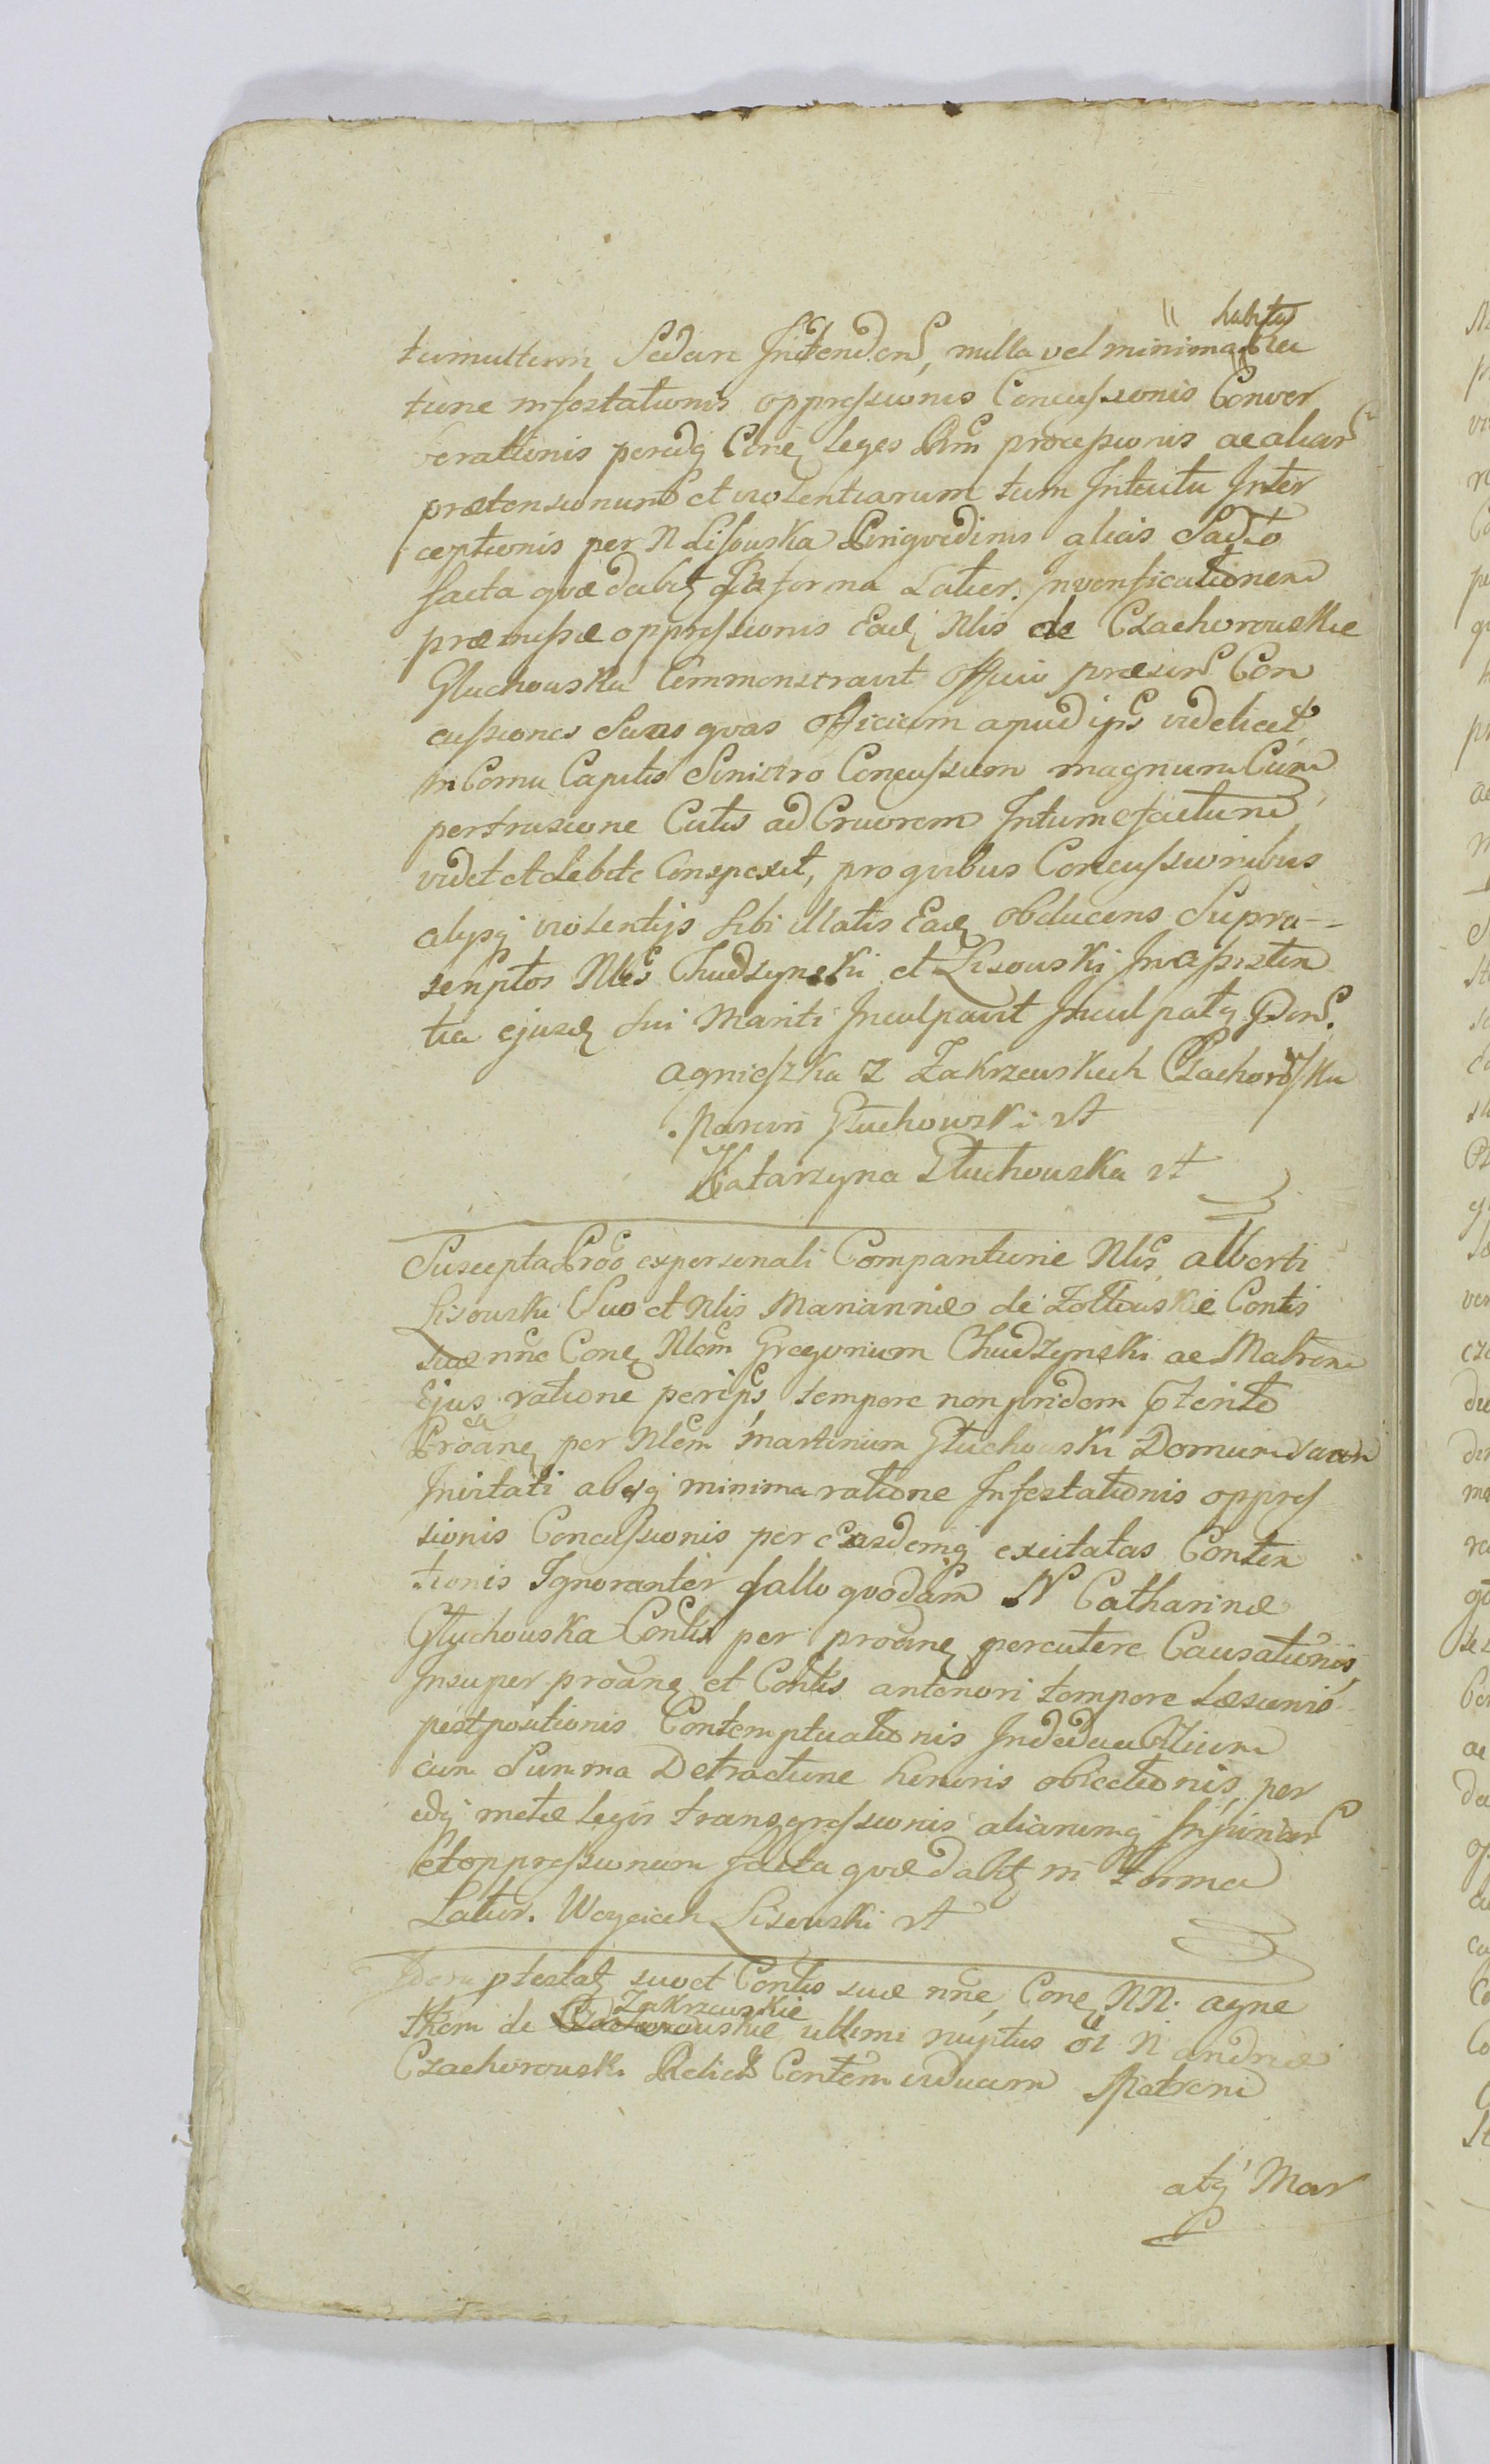 habita
tumultum Sedare Intenden, nulla vel minima ra
tione infestationis oppressionis Concussionis Conver
berationis peradq Cone leges Rm processionis ac aliar
prætensionum et violentiarum tum Intuitu Inter
ceptionis per N Lisouska Pingvedinis alias Sadło
facta quæ dabit In forma Latior. In verificationem
præmissæ oppressionis Ead Nlis de Czachorouskie
Gluchouska Commonstravit officio præsen Con
cussiones Suas quas officium apud ips videlicet
in Cornu Capitis Sinistro Concussum magnum Cum
pertrusione Cutis ad Cruorem Intumefactum
videt et debite Conspexit, pro quibus Concussionibus
alysq violentijs sibi illatis Ead obducens Supra-
scriptos Nles Chudzynski et Lisouski In assisten
tia ejusd sui Mariti Inculpavit Inculpatq Pden.
Agnieszka z Zakrzeuskich Czachorowska
Marcin Głuchowski st
Katarzyna Głuchouska st
Suscepta Pro ex personali Comparitione Nlis Alberti
Lisouski Suo et Nlis Mariannæ de Zołtouskie Contis
suæ nne Cone Nlem Gregorium Chudzynski ac Matrem
Ejus ratione per ips tempore non pridem pterito
Proane per Nlem Martinum Głuchouski Domum suam
Invitati absq minima ratione Infestationis oppres
sionis Concussionis per easdemq excitatas Conten
tionis Ignoranter fallo quodam N Catharinæ
Głuchouska Contis per proane percutere Causationis,
Insuper proane et Contis anteriori tempore Læsionis
postpositionis Contemptuationis
cum Summa Detractione honoris obiectionis, per
adq metæ legis transgressionis aliarumq Injuriar
et oppressionum facta quæ dabit in forma
Latior. Woyciech Lisouski st
Idem ptestat suo et Contis suæ nne, Cone NN. Agne
Zakrzeuskie
them de Czachorouskie ultimi nuptus ol N Andreæ
Czachorouski Relicta Contem viduam Matrem
atq Mar